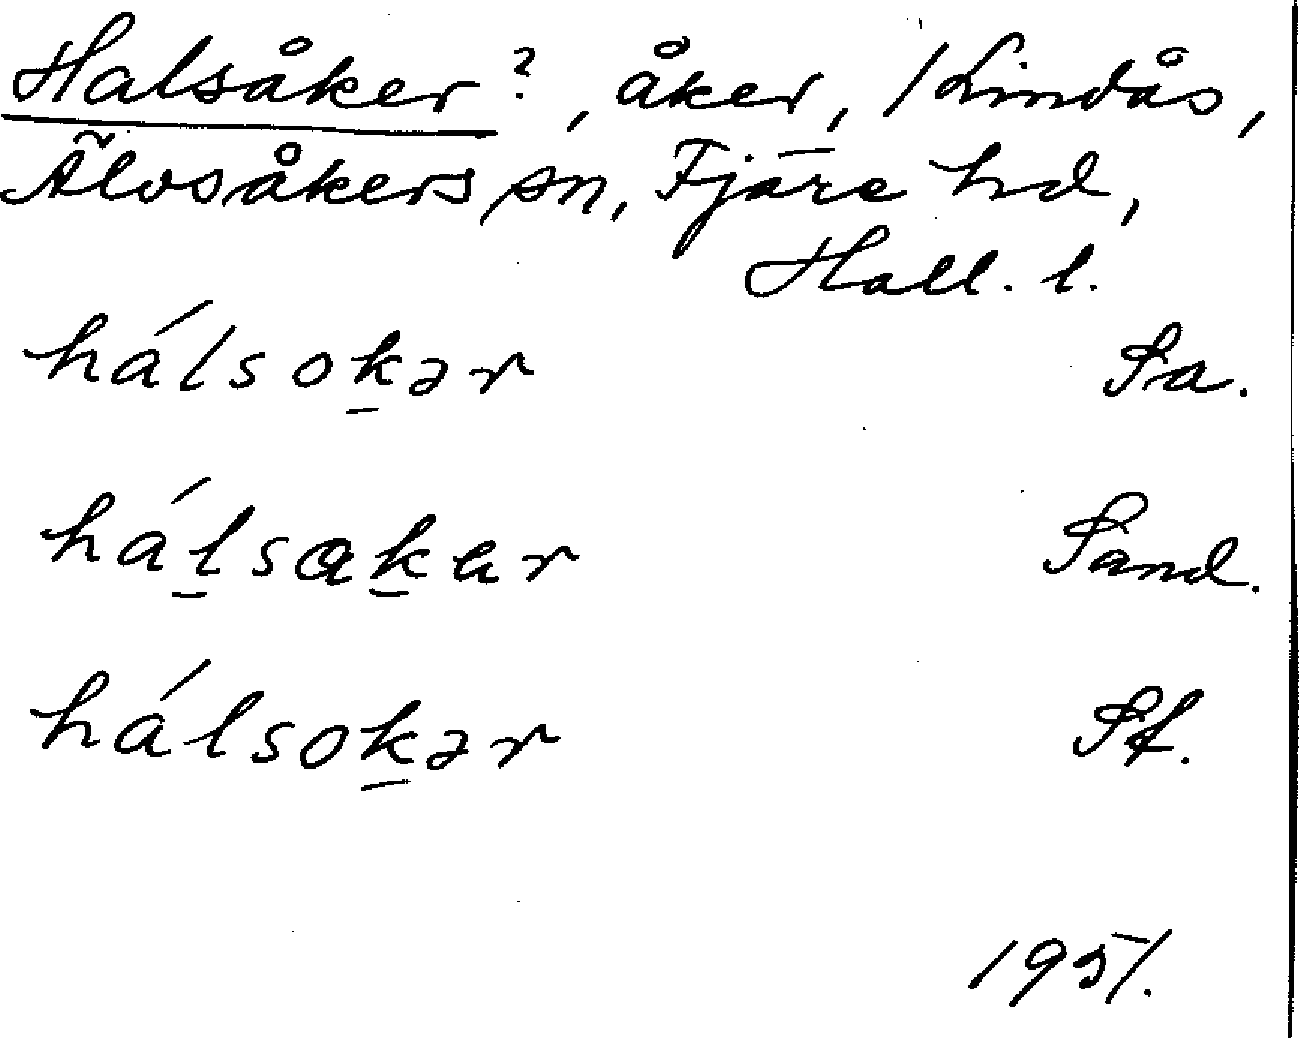 Halsåker?, åker, / Lindås,
Älvsåkers sn, Fjäre hd,
Hall. l.
hálsokər Sa.
hálsakar Sand.
hálsokər Sf.
1951.